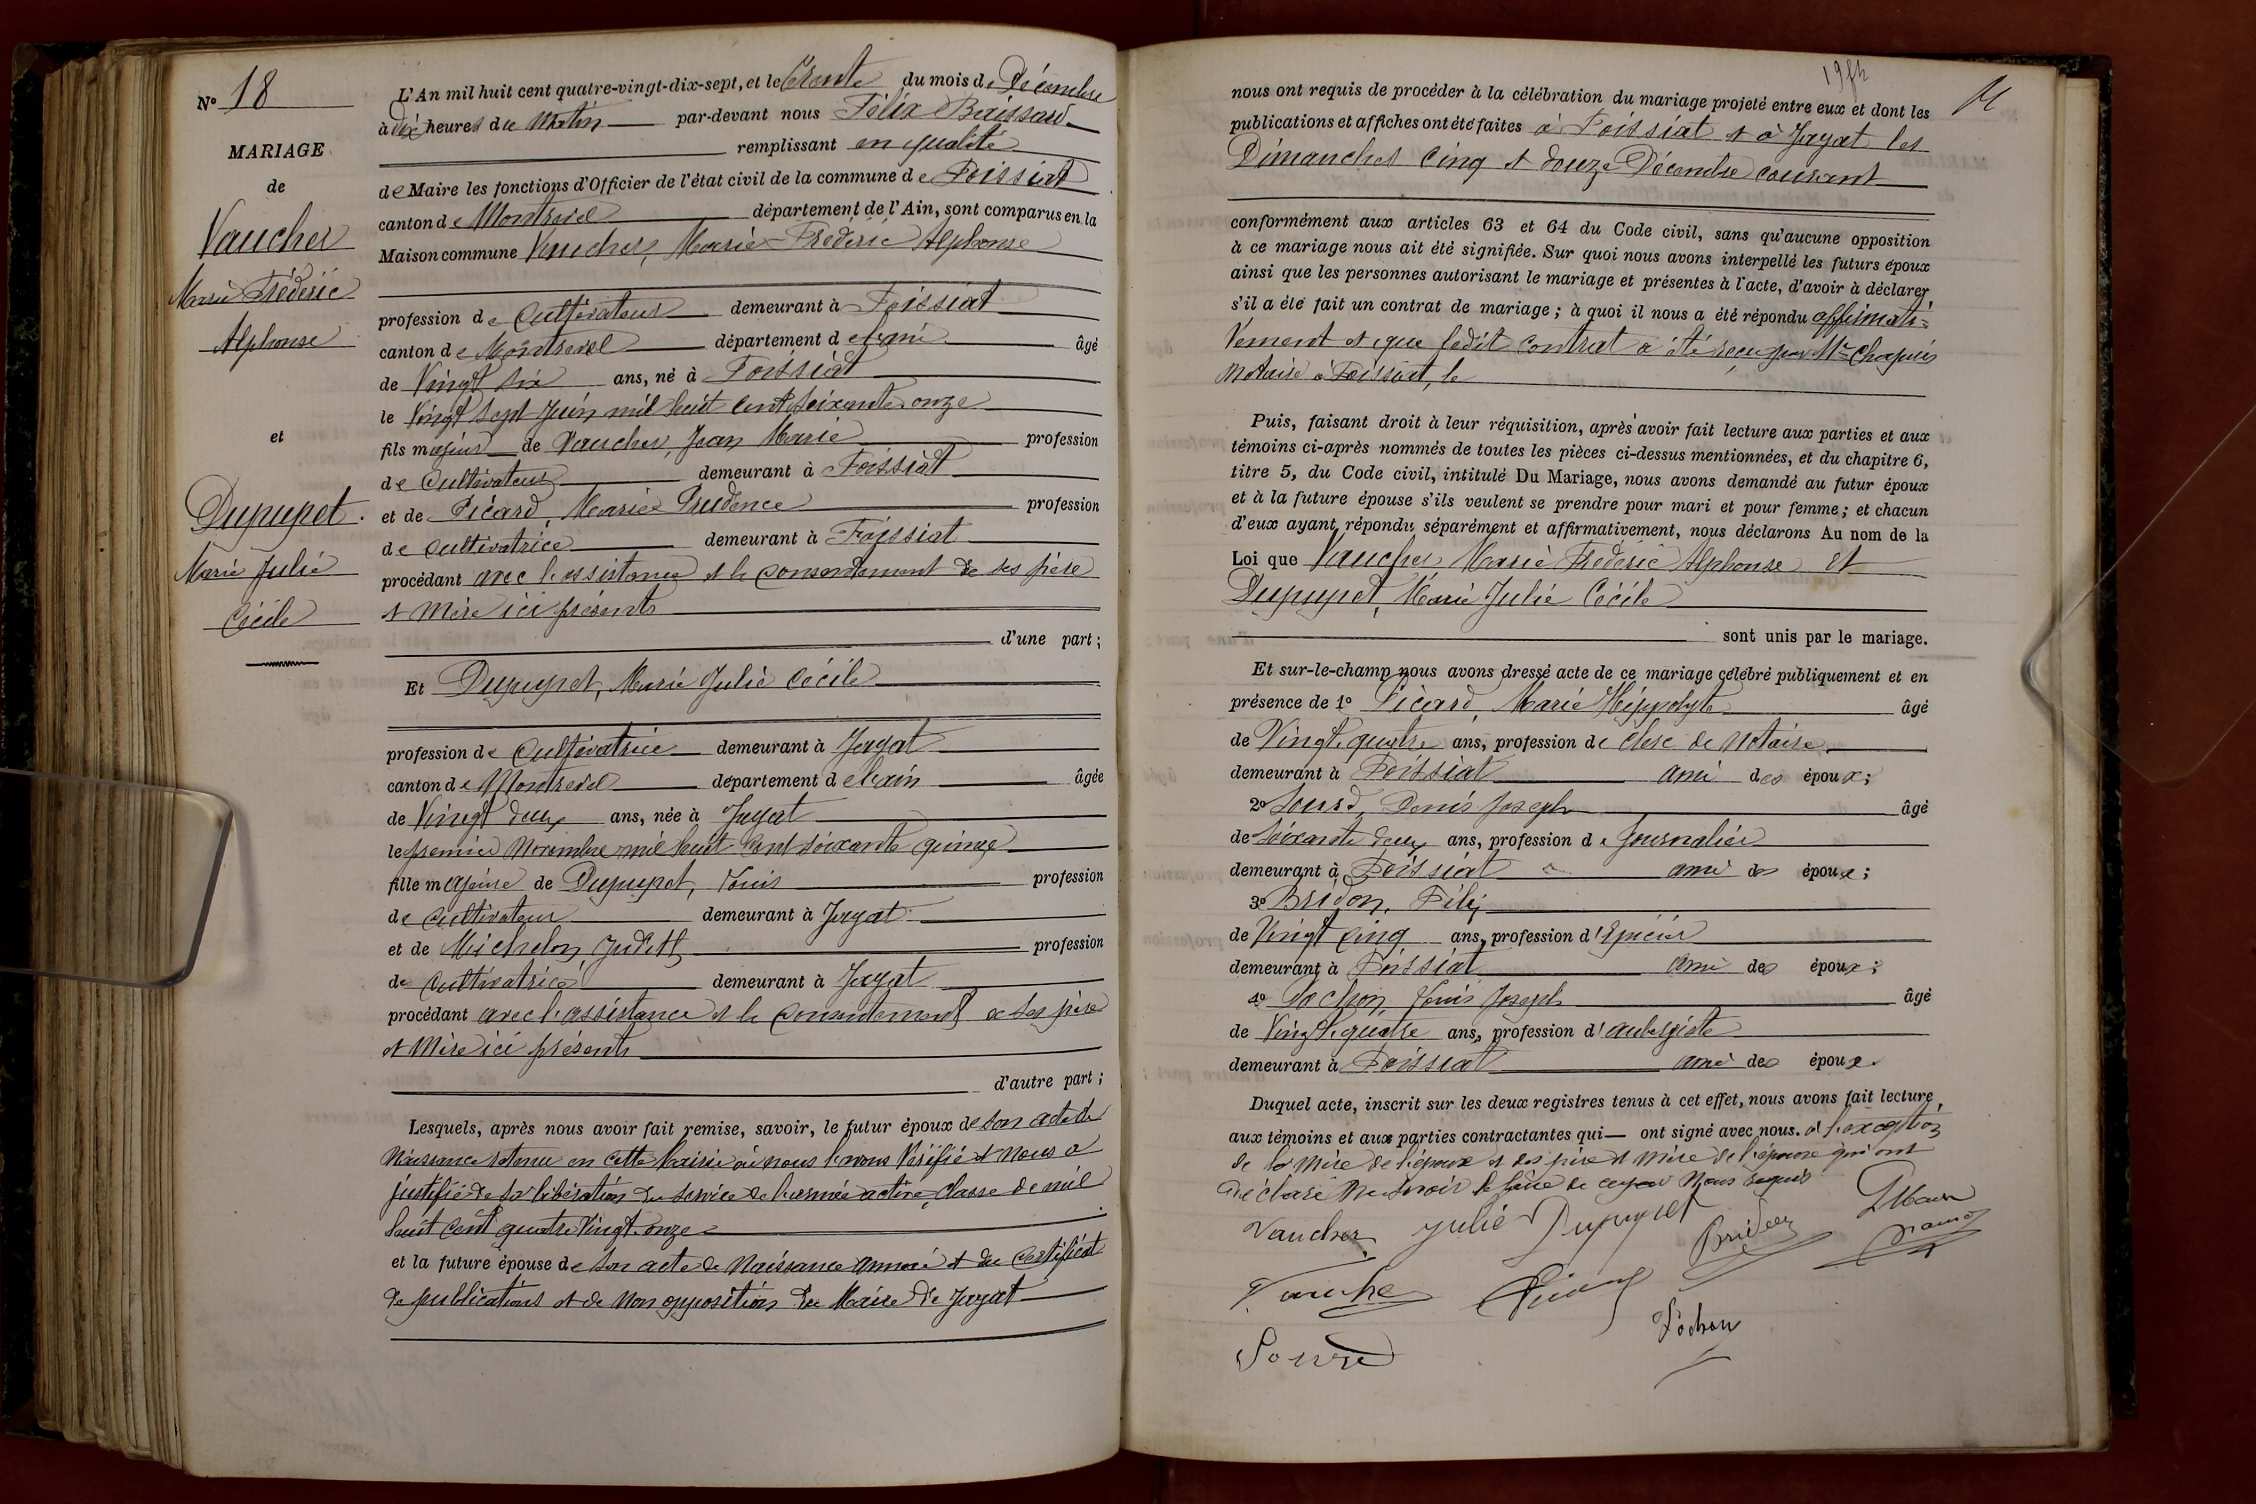 N° 18
MARIAGE
de
Vaucher
Marie Frédéric
Alphonse
et
Dupupet
Marie Julie
Cécile
L'An mil huit cent quatre-vingt-dix-sept, et le trente du mois de Décembre
à dix heures du Matin par-devant nous Félix
remplissant en qualité
de Maire les fonctions d'Officier de l'état civil de la commune de Foissiat
canton de Montrevel département de l'Ain, sont comparus en la
Maison commune Vaucher, Marie Frédéric Alphonse
profession de Cultivateur demeurant à Foissiat
canton de Montrevel département de l'ain âgé
de Vingt six ans, né à Foissiat
le Vingt sept Juin mil huit cent soixante onze
fils majeur de Vaucher, Jean Marie profession
de Cultivateur demeurant à Foissiat
et de Picard, Marie Prudence profession
de cultivatrice demeurant à Foissiat
procédant avec l'assistance et le consentement de ses père
et mère ici présents
d'une part;
Et Dupupet, Marie Julie Cécile
profession de Cultivatrice demeurant à Jayat
canton de Montrevel département de l'ain âgée
de Vingt deux ans, née à Jayat
le premier Novembre mil huit cent soixante quinze
fille majeure de Dupupet, Louis profession
de cultivateur demeurant à Jayat
et de Michelon, Judith profession
de Cultivatrice demeurant à Jayat
procédant avec l'assistance et le consentement de ses père
et Mère ici présents
d'autre part;
Lesquels, après nous avoir fait remise, savoir, le futur époux de son acte de
Naissance retenu en cette Mairie où nous l'avons Vérifié et Nous a
justifié de sa libération du service de l'armée active, classe de mil
huit cent quatre Vingt onze
et la future épouse de son acte de Naissance annexé et du Certificat
de publications et de Non opposition du Maire de Jayat
19
nous ont requis de procéder à la célébration du mariage projeté entre eux et dont les
publications et affiches ont été faites à Foissiat et à Jayat les
Dimanches Cinq et douze Décembre courant
conformément aux articles 63 et 64 du Code civil, sans qu'aucune opposition
à ce mariage nous ait été signifiée. Sur quoi nous avons interpellé les futurs époux
ainsi que les personnes autorisant le mariage et présentes à l'acte, d'avoir à déclarer,
s'il a été fait un contrat de mariage; à quoi il nous a été répondu affirmati=
Vement et que ledit contrat a été reçu par Me Chapuis
Notaire à Foissiat, le
Puis, faisant droit à leur réquisition, après avoir fait lecture aux parties et aux
témoins ci-après nommés de toutes les pièces ci-dessus mentionnées, et du chapitre 6,
titre 5, du Code civil, intitulé Du Mariage, nous avons demandé au futur époux
et à la future épouse s'ils veulent se prendre pour mari et pour femme; et chacun
d'eux ayant répondu séparément et affirmativement, nous déclarons Au nom de la
Loi que Vaucher Marie Frédéric Alphonse Et
Dupupet, Marie Julie Cécile
sont unis par le mariage.
Et sur-le-champ nous avons dressé acte de ce mariage célébré publiquement et en
présence de 1° Picard, Marie Hippolyte âgé
de Vingt quatre ans, profession de clerc de Notaire
demeurant à Foissiat ami des époux;
2° Sourd, Denis Joseph âgé
de Soixante deux ans, profession de Journalier
demeurant à Foissiat ami des époux;
3° Bridon, Félix
de Vingt cinq ans, profession d'Epicier
demeurant à Foissiat ami des époux;
4° Pochon, Louis Joseph âgé
de Vingt quatre ans, profession d'aubergiste
demeurant à Foissiat ami des époux.
Duquel acte, inscrit sur les deux registres tenus à cet effet, nous avons fait lecture,
aux témoins et aux parties contractantes qui ont signé avec nous. à l'exception
de la mère de l'époux et des père et mère de l'épouse qui ont
Déclaré ne savoir le faire de ce Nous requis
Vaucher Julie Dupupet Bridon
Vaucher Picard
Pochon
Sourd